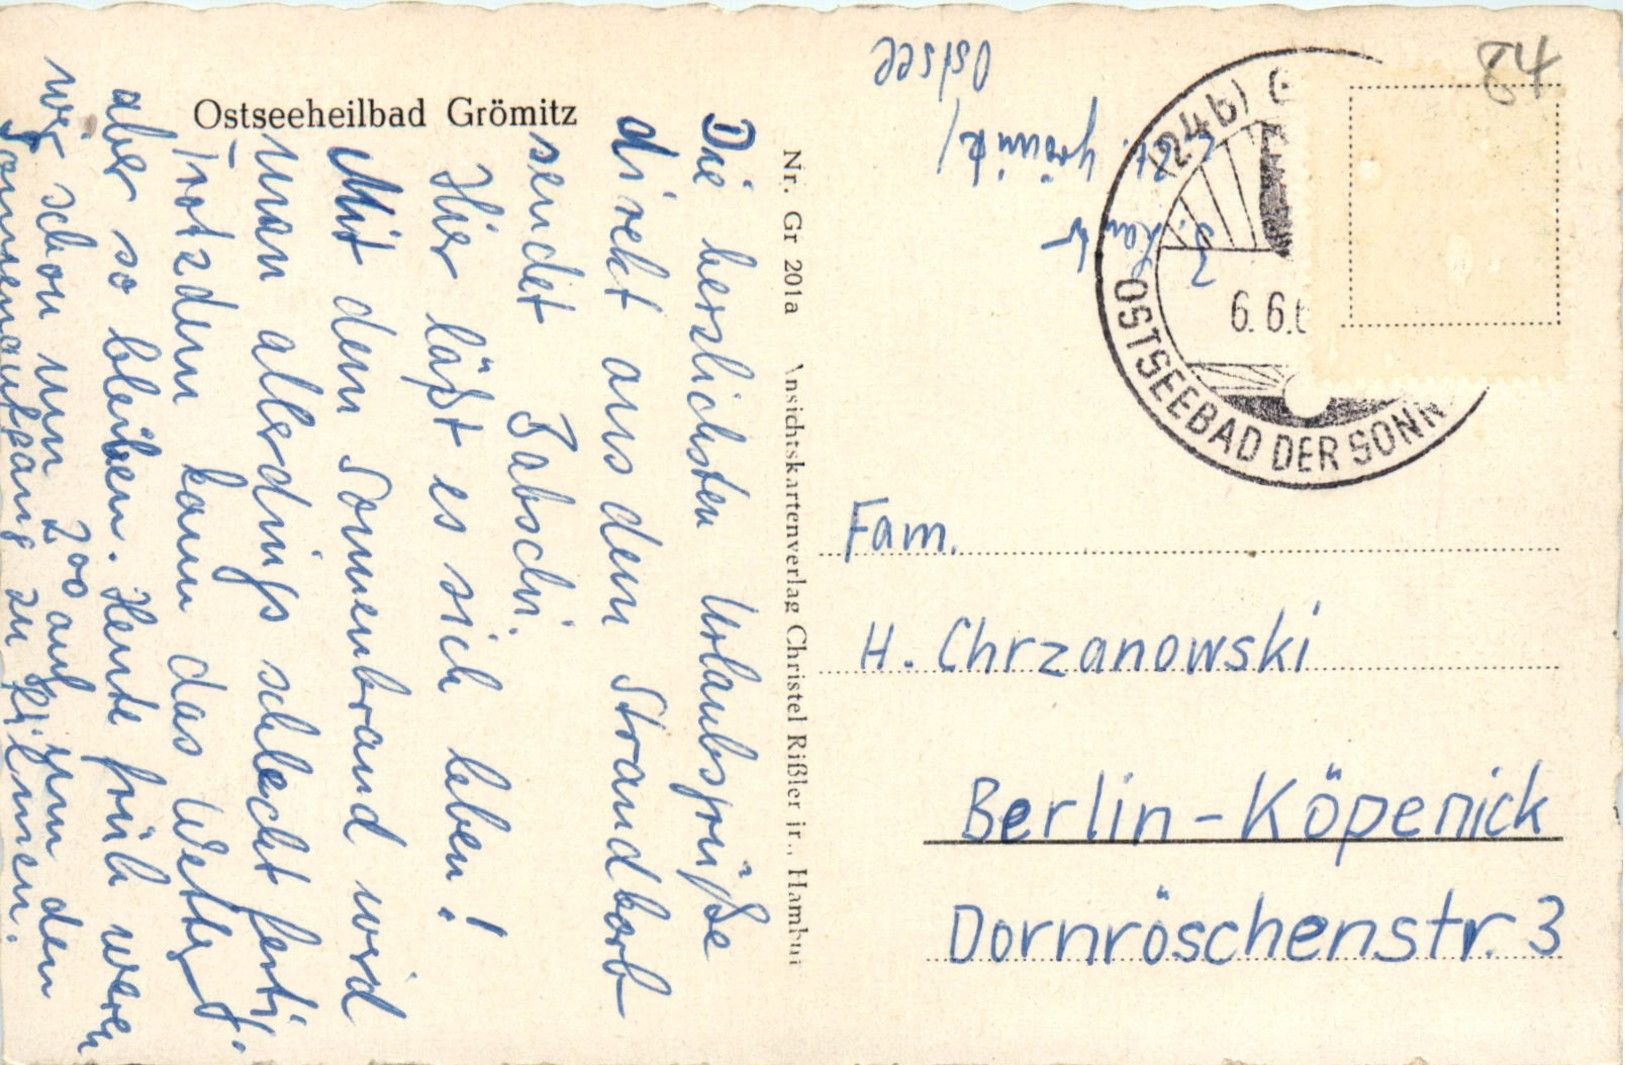 Ostseeheilbad Grömitz
Die herzlichsten Urlaubsgrüße
direkt aus dem Strandkorb
sendet Babschi.
Hier läßt es sich leben!
Mit dem Sonnenbrand wird
man allerdings schlecht fertig.
Trotzdem kann das Wetter
aber so bleiben. Heute früh waren
wir schon um 200 auf um den
Sonnenaufgang zu filmen.
Nr. Gr 201a Ansichtskartenverlag Christel Rißler jr., Hambur
Grömitz/
Ostsee
84
(24b) G
6.6.6
OSTSEEBAD DER SONN
Fam.
H. Chrzanowski
Berlin-Köpenick
Dornröschenstr. 3